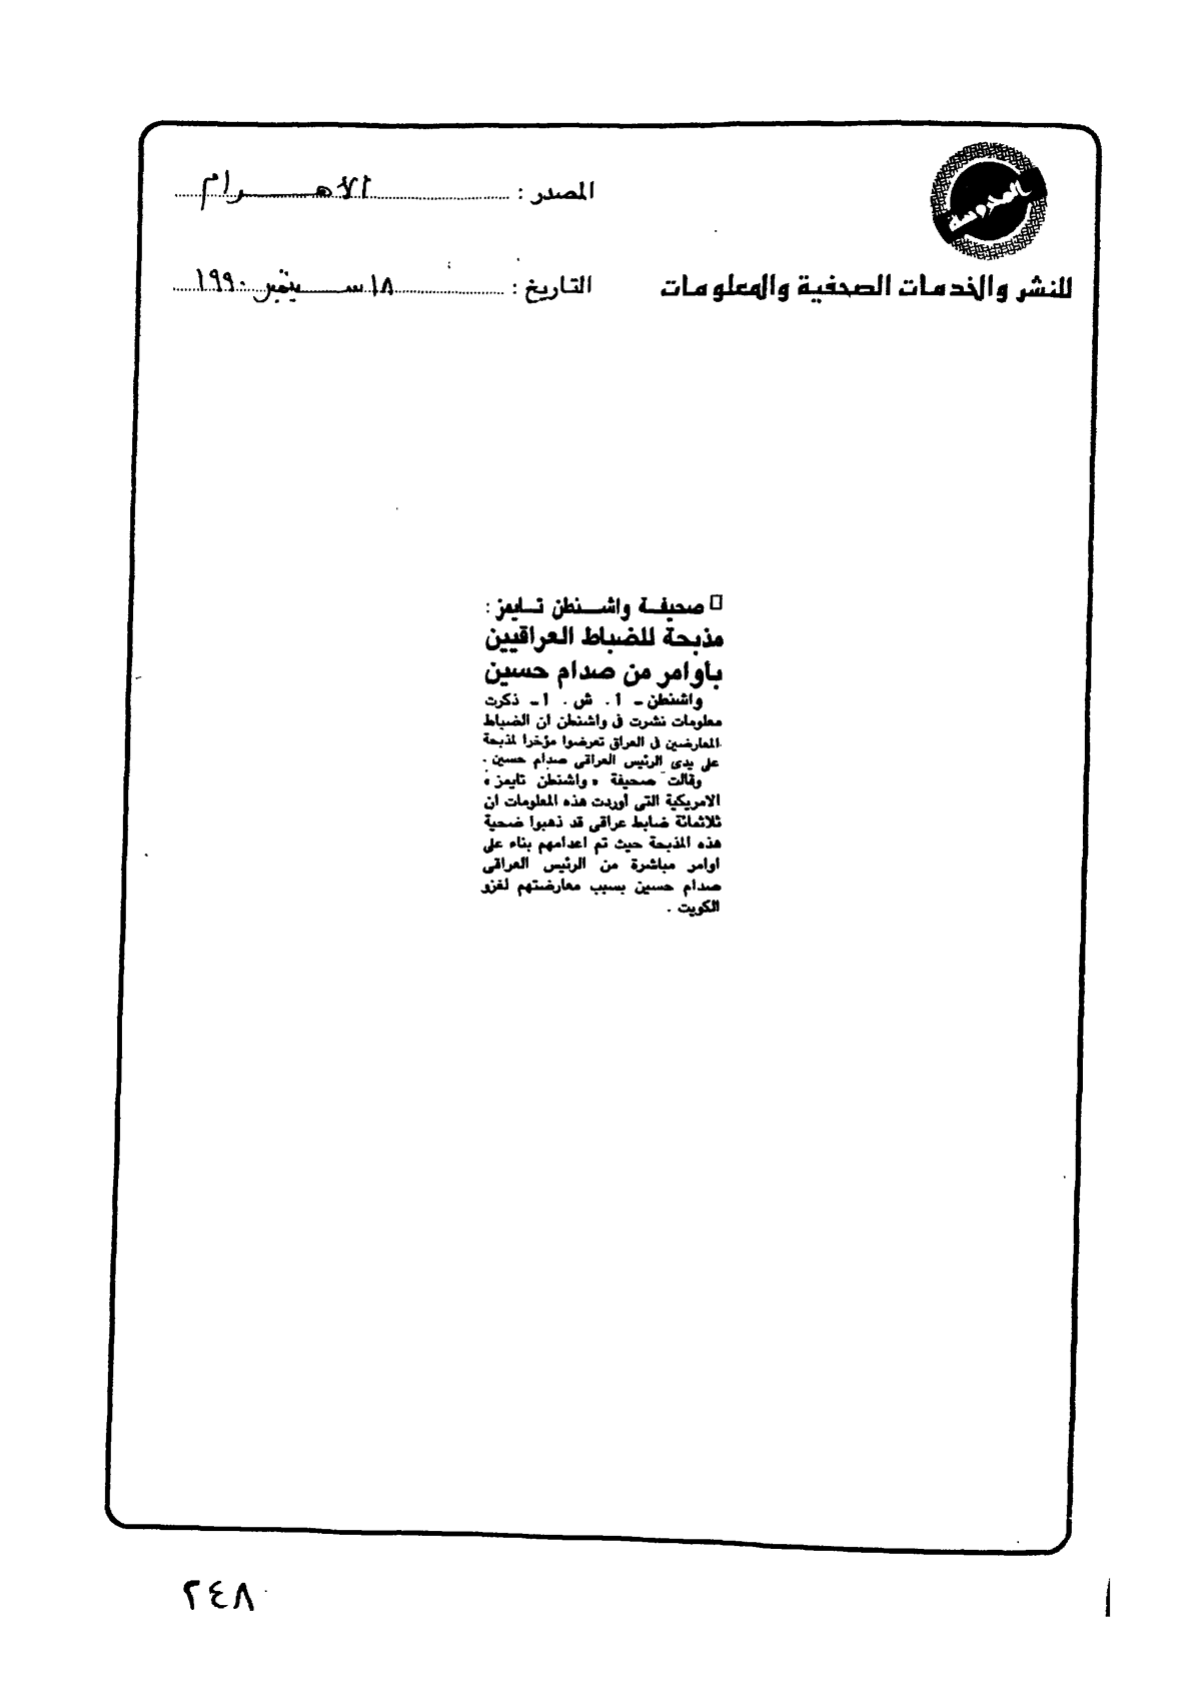 المصدر : الأهرام
للنشر والخدمات الصحفية والمعلومات
التاريخ : ١٨ سبتمبر ١٩٩٠
صحيفة واشنطن تايمز :
مذبحة للضباط العراقيين
بأوامر من صدام حسين
واشنطن ـ أ . ش . أ ـ ذكرت
معلومات نشرت فى واشنطن ان الضباط
المعارضين فى العراق تعرضوا مؤخرا لمذبحة
على يدى الرئيس العراقى صدام حسين .
وقالت صحيفة « واشنطن تايمز »
الامريكية التى أوردت هذه المعلومات ان
ثلاثمائة ضابط عراقى قد ذهبوا ضحية
هذه المذبحة حيث تم اعدامهم بناء على
اوامر مباشرة من الرئيس العراقى
صدام حسين بسبب معارضتهم لغزو
الكويت .
٢٤٨